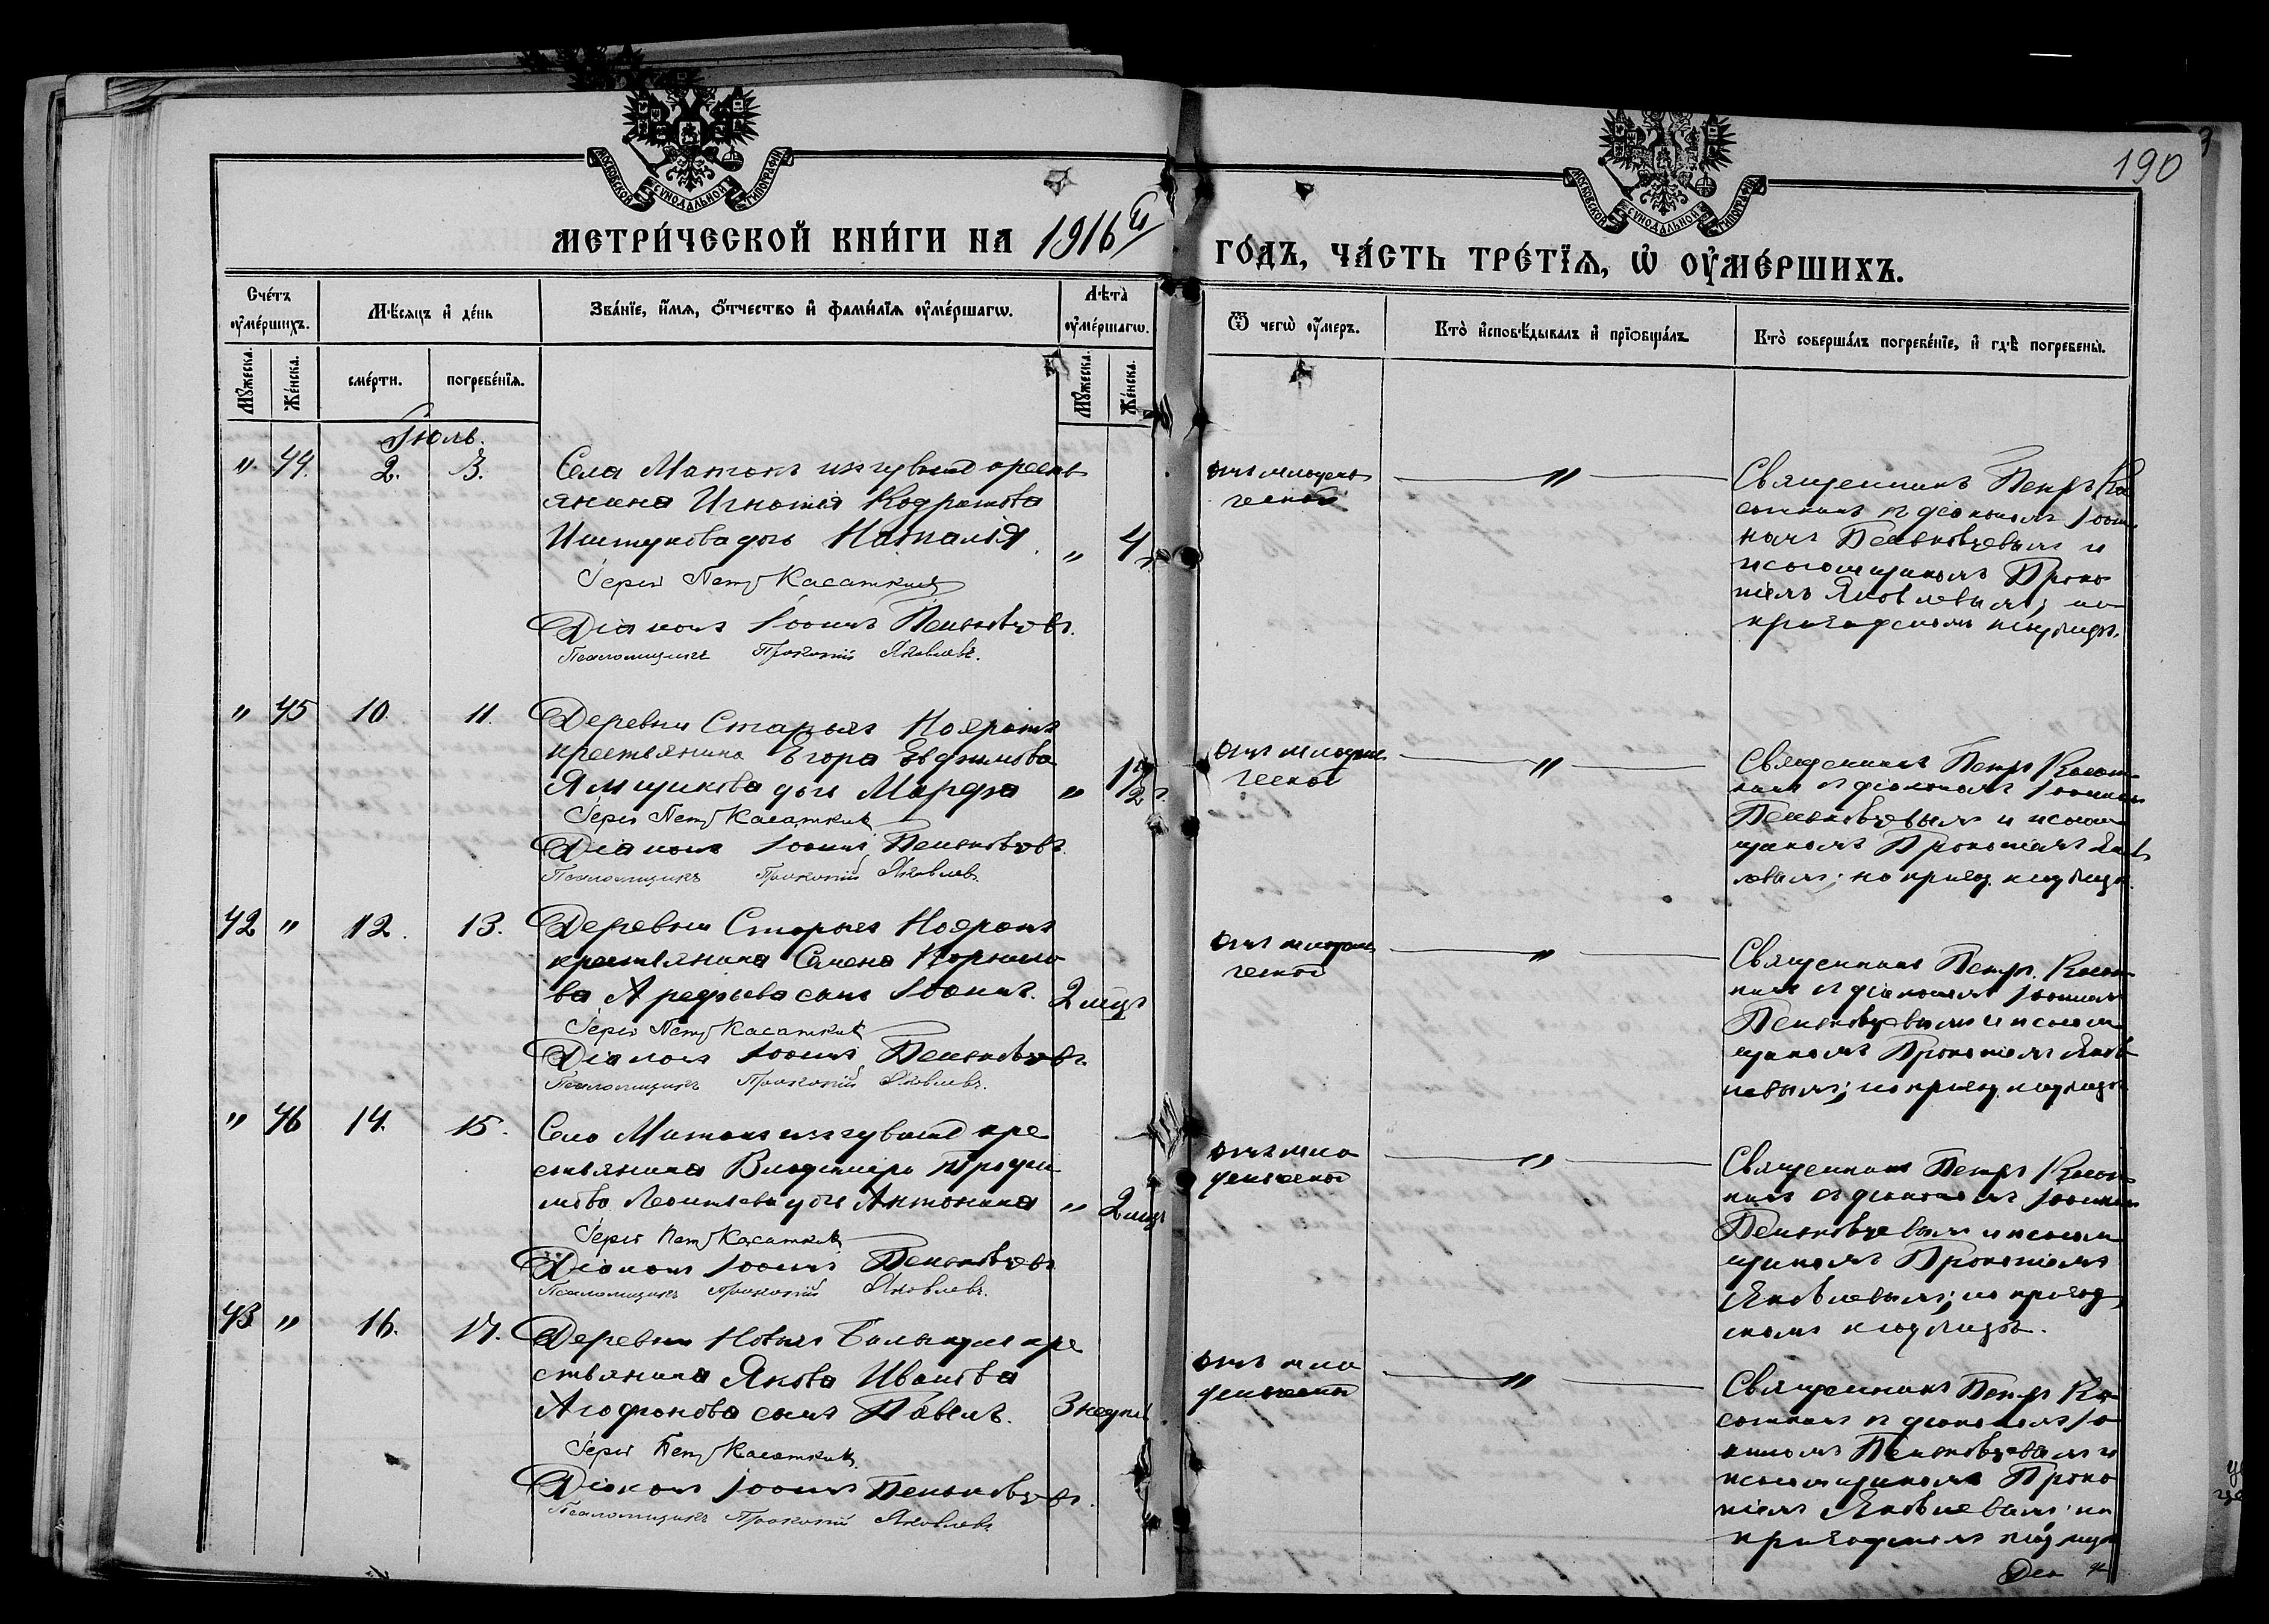 190
МОСКОВСКОЙ СѴНОДАЛЬНОЙ ТИПОГРАФІИ
МОСКОВСКОЙ СѴНОДАЛЬНОЙ ТИПОГРАФІИ
МЕТРИ́ЧЕСКОЙ КНИ́ГИ НА 1916й ГО́ДЪ, ЧА́СТЬ ТРЕ́ТЇѦ, Ѡ҆ ОУ҆МЕ́РШИХЪ.
Сче́тъ оу҆ме́ршихъ.
Мѣ́сяцъ и҆ де́нь
Зва́нїе, и҆́мѧ, ѻ҆́тчество и҆ фами́лїѧ оу҆ме́ршагѡ.
Лѣта̀ оу҆ме́ршагѡ.
Ѿ чегѡ̀ оу҆́меръ.
Кто̀ и҆сповѣ́дывалъ и҆ прїѡбща́лъ
Кто̀ соверша́лъ погребе́нїе, и҆ гдѣ̀ погребены̀.
Мꙋ́жеска.
Же́нска.
сме́рти.
погребе́нїѧ.
Мꙋ́жеска.
Же́нска.
Іюль.
" 44. 2. 3.
Села Матакъ изъ чувашъ кресть
янина Игнатія Кодратова
Иштукова дочь Наталія " 4 г.
Іерей Петръ Касаткинъ
Діаконъ Іоаннъ Пеньковцовъ.
Псаломщикъ Прокопій Яковлевъ.
отъ младен
ческой
"
Священникъ Петръ Ка
саткинъ съ діакономъ Іоан
номъ Пеньковцевымъ и
псаломщикомъ Проко
піемъ Яковлевымъ; на
приходскомъ кладбищѣ.
" 45 10. 11.
Деревни Старыхъ
крестьянина Егора Евфимова
Ямщикова дочь Марфа " 1½ г.
Іерей Петръ Касаткинъ
Діаконъ Іоаннъ Пеньковцовъ
Псаломщикъ Прокопій Яковлевъ.
отъ младен
ческой
"
Священникъ Петръ Касат
кинъ съ діакономъ Іоанномъ
Пеньковцевымъ и псалом
щикомъ Прокопіемъ Яков
левымъ; на приход. кладбищѣ.
42 " 12. 13.
Деревни Старыхъ
крестьянина Семена Корнило
ва Арефьева сынъ Іоаннъ. 2 мѣц.
Іерей Петръ Касаткинъ
Діаконъ Іоаннъ Пеньковцовъ.
Псаломщикъ Прокопій Яковлевъ.
отъ младен
ческой
"
Священникъ Петръ Касат
кинъ съ діакономъ Іоанномъ
Пеньковцевымъ и псалом
щикомъ Прокопіемъ Яков
левымъ; на приход. кладбищѣ
" 46 14. 15.
Села Матакъ изъ чувашъ кре
стьянина Владиміра Трофи
мова Леонтьева дочь Антонина " 2 мѣц.
Іерей Петръ Касаткинъ
Діаконъ Іоаннъ Пеньковцовъ
Псаломщикъ Прокопій Яковлевъ.
отъ мла
денческой
"
Священникъ Петръ Касат
кинъ съ діакономъ Іоанномъ
Пеньковцевымъ и псалом
щикомъ Прокопіемъ
Яковлевымъ; на приход
скомъ кладбищѣ.
43 " 16. 17.
Деревни Новыхъ кре
стьянина Якова Иванова
Агафонова сынъ Павелъ. 3 недѣли
Іерей Петръ Касаткинъ
Діаконъ Іоаннъ Пеньковцовъ.
Псаломщикъ Прокопій Яковлевъ
отъ мла
денческой
"
Священникъ Петръ Ка
саткинъ съ діакономъ Іо
анномъ Пеньковцевымъ и
псаломщикомъ Проко
піемъ Яковлевымъ; на
приходскомъ кладбищѣ